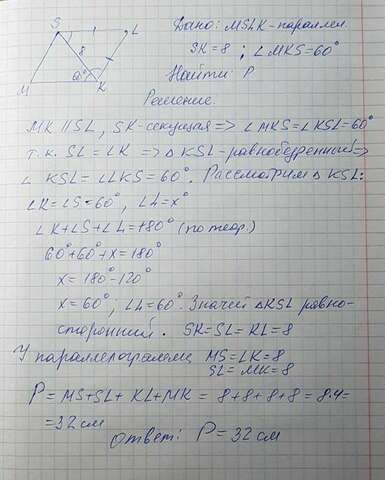 S L Дано: MSLK-параллел.
8 SK=8 ; ∠MKS=60°
60° Найти: P
M K
Решение.
MK || SL, SK-секущая => ∠MKS=∠KSL=60°
т.к. SL=LK => △KSL-равнобедренный =>
∠KSL=∠LKS=60°. Рассмотрим △KSL:
∠K=∠S=60°, ∠L=x°
∠K+∠S+∠L=180° (по теор.)
60°+60°+x=180°
x=180°-120°
x=60°; ∠L=60°. Значит △KSL равно-
сторонний. SK=SL=KL=8
У параллелограмма MS=LK=8
SL=MK=8
P=MS+SL+KL+MK=8+8+8+8=8·4=
=32 см
Ответ: P=32 см